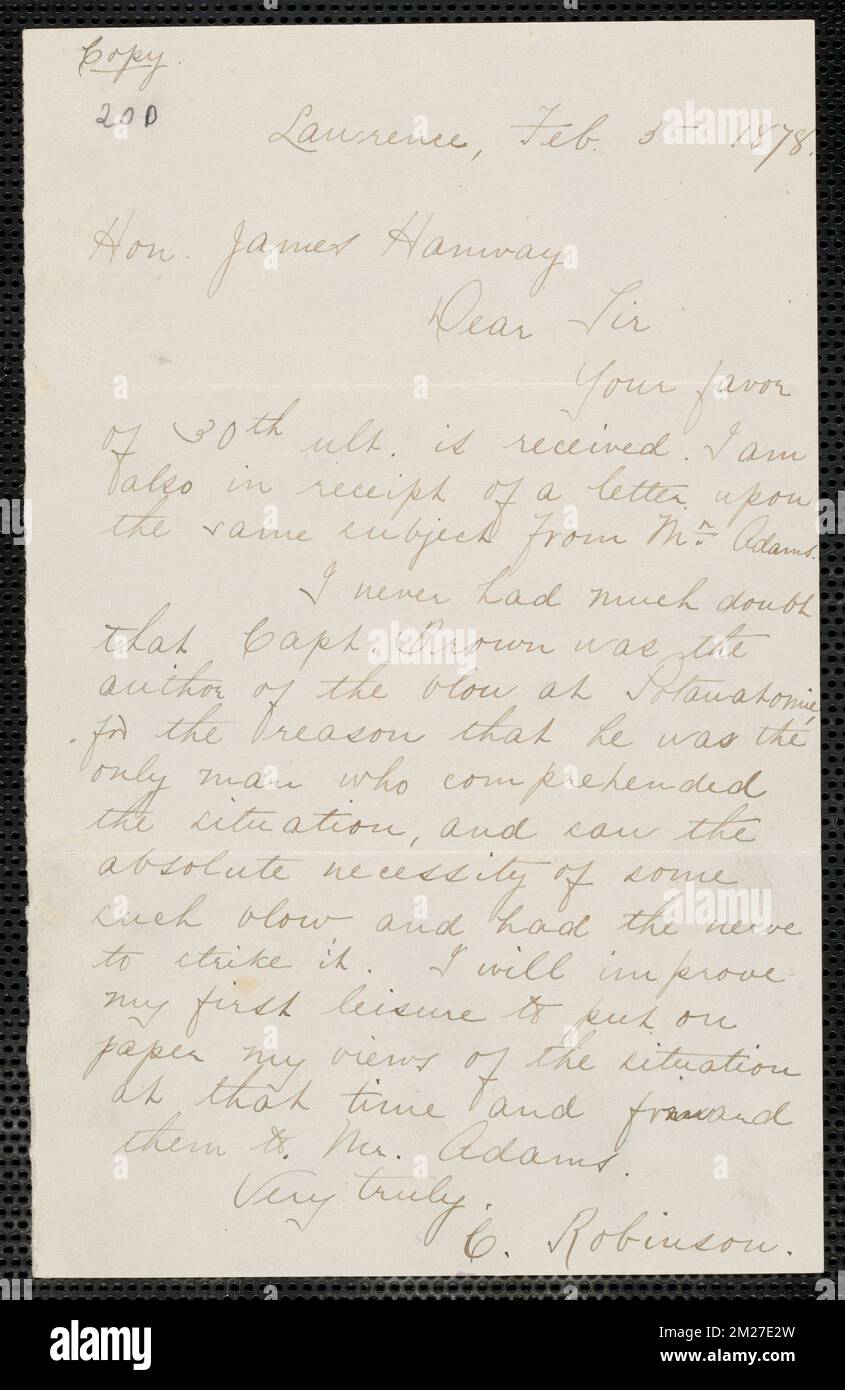 Copy.
200
Lawrence, Feb. 5 1878.
Hon. James Hanway
Dear Sir
Your favor
of 30th ult. is received. I am
also in receipt of a letter upon
the same subject from Mr. Adams.
I never had much doubt
that Capt. Brown was the
author of the blow at Potawatomie,
for the reason that he was the
only man who comprehended
the situation, and saw the
absolute necessity of some
such blow and had the nerve
to strike it. I will improve
my first leisure to put on
paper my views of the situation
at that time and forward
them to Mr. Adams.
Very truly.
C. Robinson.
alamy
Image ID: 2M27E2W
www.alamy.com